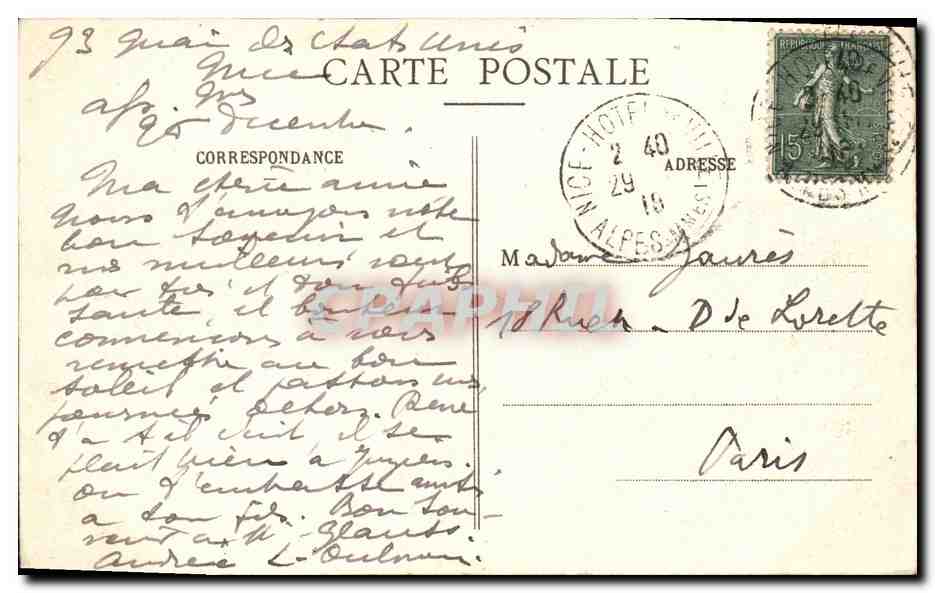 93 quai des Etats Unis
Nice
CARTE POSTALE
REPUBLIQUE FRANÇAISE
15c
NICE-HOTEL DE VILLE
2 40
29
ALPES-MMES
CORRESPONDANCE
ADRESSE
Ma chère amie
nous t'envoyons notre
bon souvenir et
nos meilleurs vœux
pour toi et ton fils
santé et bonheur
commençons à nous
remettre au bon
soleil et passons nos
journées dehors. René
t'a-t-il écrit, il se
plait bien à
on t'embrasse ainsi
Madame Jaurès
18 Rue N. D de Lorette
Paris
a ton fils. Bon sou-
venir a M.
Andrée L.
CPAPHIL